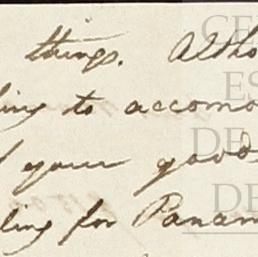 things. Altho
ling to accomo
your good
ling for Panam
CE
ES
DE
DE